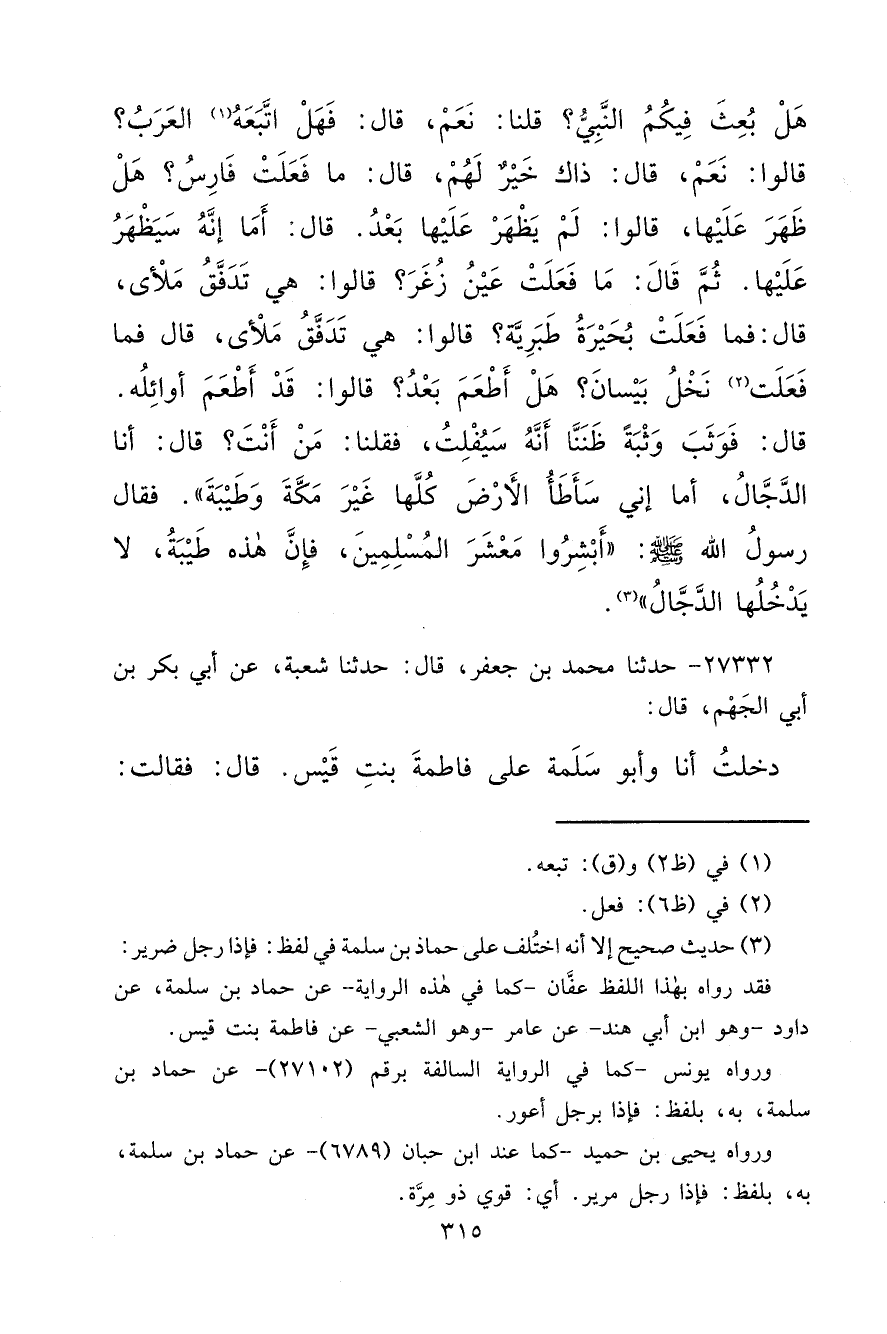 هَلْ بُعِثَ فِيكُمُ النَّبِيُّ؟ قلنا: نَعَمْ، قال: فَهَلْ اتَّبَعَهُ(١) العَرَبُ؟
قالوا: نَعَمْ، قال: ذاك خَيْرٌ لَهُمْ، قال: ما فَعَلَتْ فَارِسُ؟ هَلْ
ظَهَرَ عَلَيْها، قالوا: لَمْ يَظْهَرْ عَلَيْها بَعْدُ. قال: أَمَا إنَّهُ سَيَظْهَرُ
عَلَيْها. ثُمَّ قَالَ: مَا فَعَلَتْ عَيْنُ زُغَرَ؟ قالوا: هي تَدَفَّقُ مَلْأى،
قال: فما فَعَلَتْ بُحَيْرَةُ طَبَرِيَّة؟ قالوا: هي تَدَفَّقُ مَلْأى، قال فما
فَعَلَت(٢) نَخْلُ بَيْسانَ؟ هَلْ أَطْعَمَ بَعْدُ؟ قالوا: قَدْ أَطْعَمَ أوائِلُه.
قال: فَوَثَبَ وَثْبَةً ظَنَنَّا أَنَّهُ سَيُفْلِتُ، فقلنا: مَنْ أَنْتَ؟ قال: أنا
الدَّجَّالُ، أما إني سَأَطَأُ الأَرْضَ كُلَّها غَيْرَ مَكَّةَ وَطَيْبَةَ». فقال
رسولُ الله ﷺ: «أَبْشِرُوا مَعْشَرَ المُسْلِمِينَ، فإِنَّ هٰذه طَيْبَةُ، لا
يَدْخُلُها الدَّجَّالُ»(٣).
٢٧٣٣٢- حدثنا محمد بن جعفر، قال: حدثنا شعبة، عن أبي بكر بن
أبي الجَهْم، قال:
دخلتُ أنا وأبو سَلَمة على فاطمةَ بنتِ قَيْس. قال: فقالت:
(١) في (ظ٢) و(ق): تبعه.
(٢) في (ظ٦): فعل.
(٣) حديث صحيح إلا أنه اختُلف على حماد بن سلمة في لفظ: فإذا رجل ضرير:
فقد رواه بهٰذا اللفظ عفَّان -كما في هٰذه الرواية- عن حماد بن سلمة، عن
داود -وهو ابن أبي هند- عن عامر -وهو الشعبي- عن فاطمة بنت قيس.
ورواه يونس -كما في الرواية السالفة برقم (٢٧١٠٢)- عن حماد بن
سلمة، به، بلفظ: فإذا برجل أعور.
ورواه يحيى بن حميد -كما عند ابن حبان (٦٧٨٩)- عن حماد بن سلمة،
به، بلفظ: فإذا رجل مرير. أي: قوي ذو مِرَّة.
٣١٥